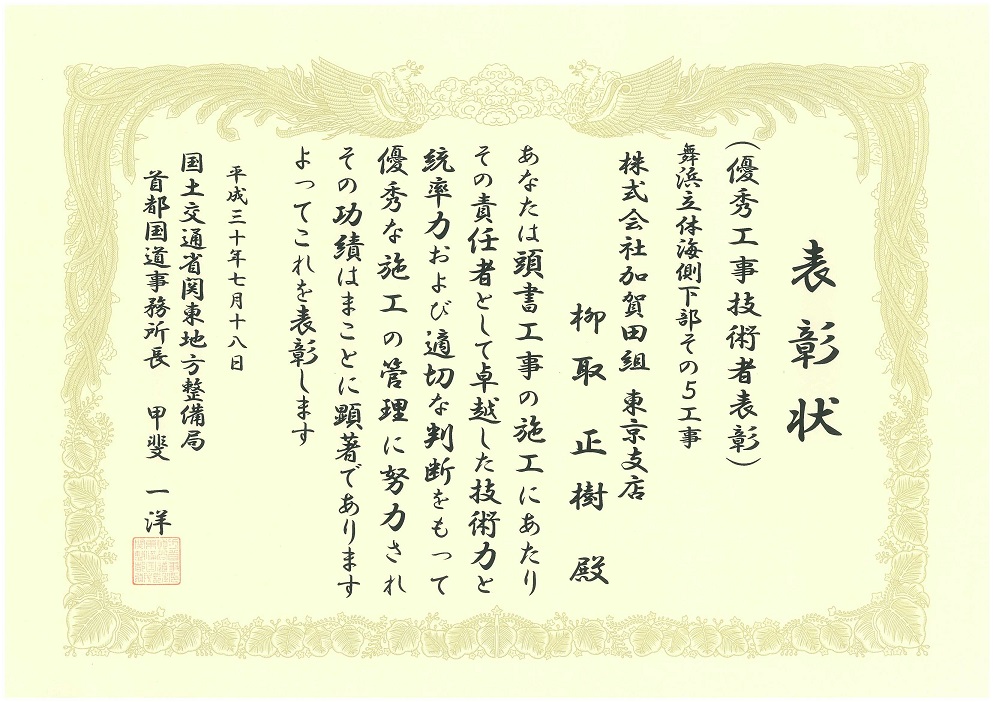 表彰状
(優秀工事技術者表彰)
舞浜立体海側下部その5工事
株式会社加賀田組 東京支店
柳取正樹 殿
あなたは頭書工事の施工にあたり
その責任者として卓越した技術力と
統率力および適切な判断をもって
優秀な施工の管理に努力され
その功績はまことに顕著であります
よってこれを表彰します
平成三十年七月十八日
国土交通省関東地方整備局
首都国道事務所長 甲斐 一洋